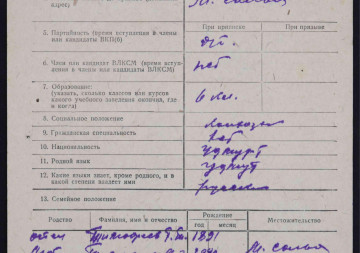 адрес)
М. Солья
При приписке При призыве
5. Партийность (время вступления в члены
или кандидаты ВКП(б)
б/п.
6. Член или кандидат ВЛКСМ (время вступ-
ления в члены или кандидаты ВЛКСМ)
нет
7. Образование
(указать, сколько классов или курсов
какого учебного заведения окончил, где
и когда)
6 кл.
8. Социальное положение
9. Гражданская специальность
нет
10. Национальность
удмурт
11. Родной язык
удмурт
12. Какие языки знает, кроме родного, и в
какой степени владеет ими
русский
13. Семейное положение
Родство Фамилия, имя и отчество Рождение Местожительство
год месяц
отец 1891 М. Солья